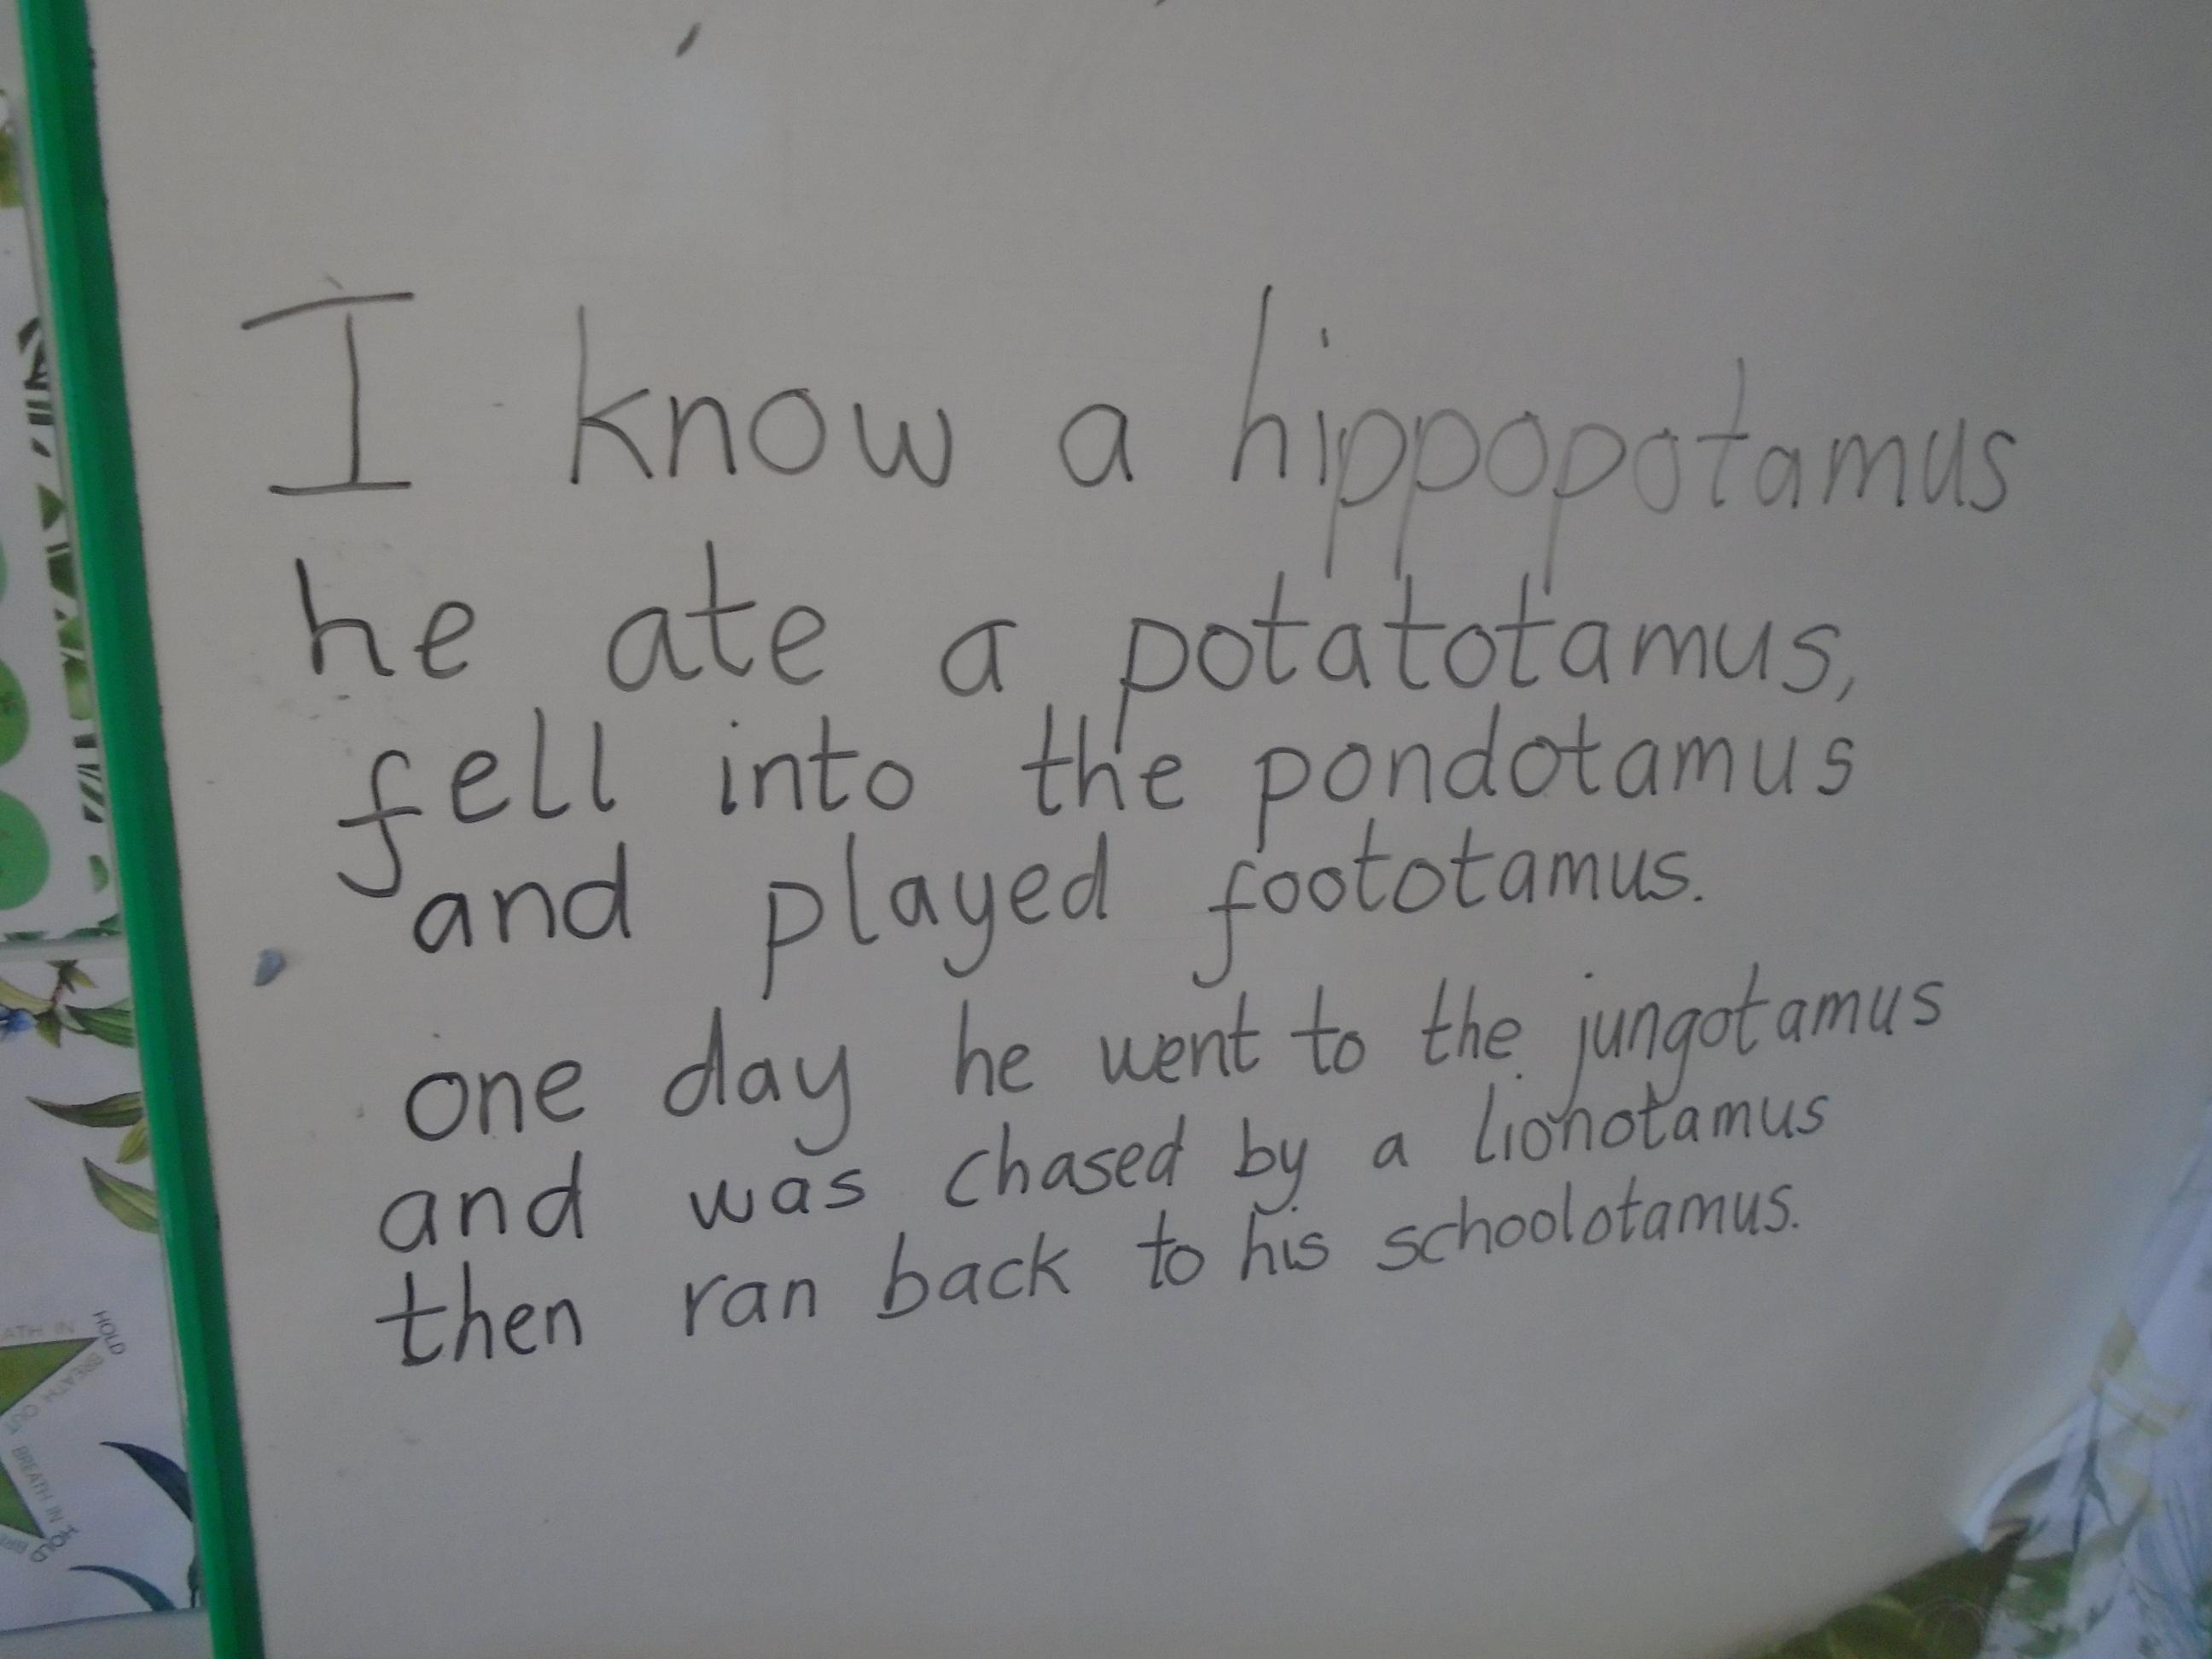 I know a hippopotamus
he ate a potatotamus,
fell into the pondotamus
and played foototamus.
one day he went to the jungotamus
and was chased by a lionotamus
then ran back to his schoolotamus.
HOLD
BREATH OUT
BREATH IN
HOLD